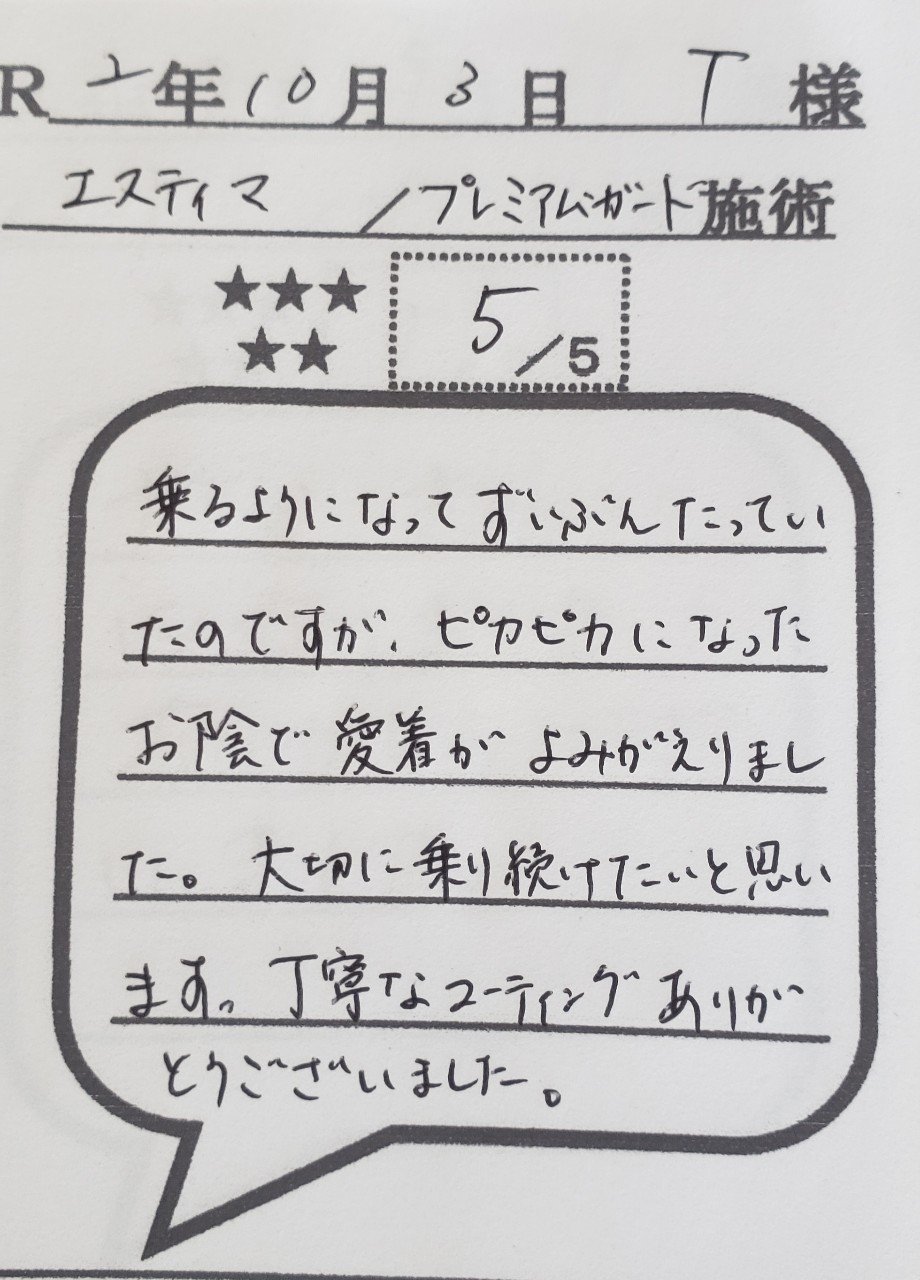 R 2年10月3日 T 様
エスティマ /プレミアムガード施術
★★★
5/5
★★
乗るようになってずいぶんたってい
たのですが、ピカピカになった
お陰で愛着がよみがえりまし
た。大切に乗り続けたいと思い
ます。丁寧なコーティングありが
とうございました。